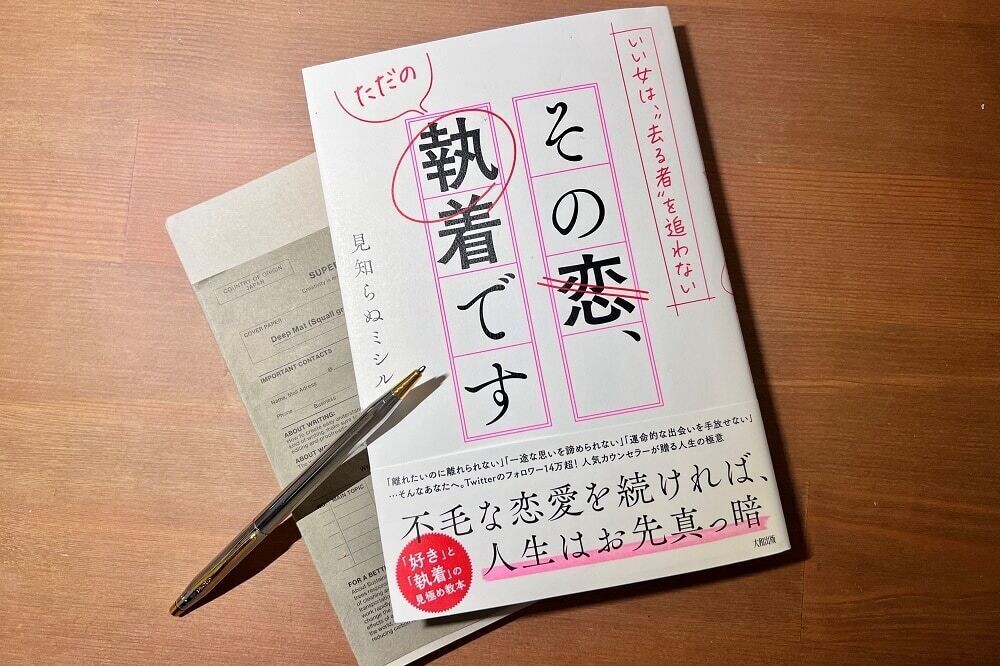 いい女は、“去る者”を追わない
その恋、
ただの
執着です
見知らぬミシル
「離れたいのに離れられない」「一途な思いを諦められない」「運命的な出会いを手放せない」
…そんなあなたへ。Twitterのフォロワー14万超！人気カウンセラーが贈る人生の極意
不毛な恋愛を続ければ、
人生はお先真っ暗
「好き」と
「執着」の
見極め教本
大和出版
COUNTRY OF ORIGIN
JAPAN
SUPE
COVER PAPER
Deep Mat (Squall gr
IMPORTANT CONTACTS
Name, Mail Adress @
Phone Business
ABOUT WRITING:
How to create easy understan
editing and proofreadin
ABOUT
The
MAIN TOPIC
FOR A BETT
About Sustai